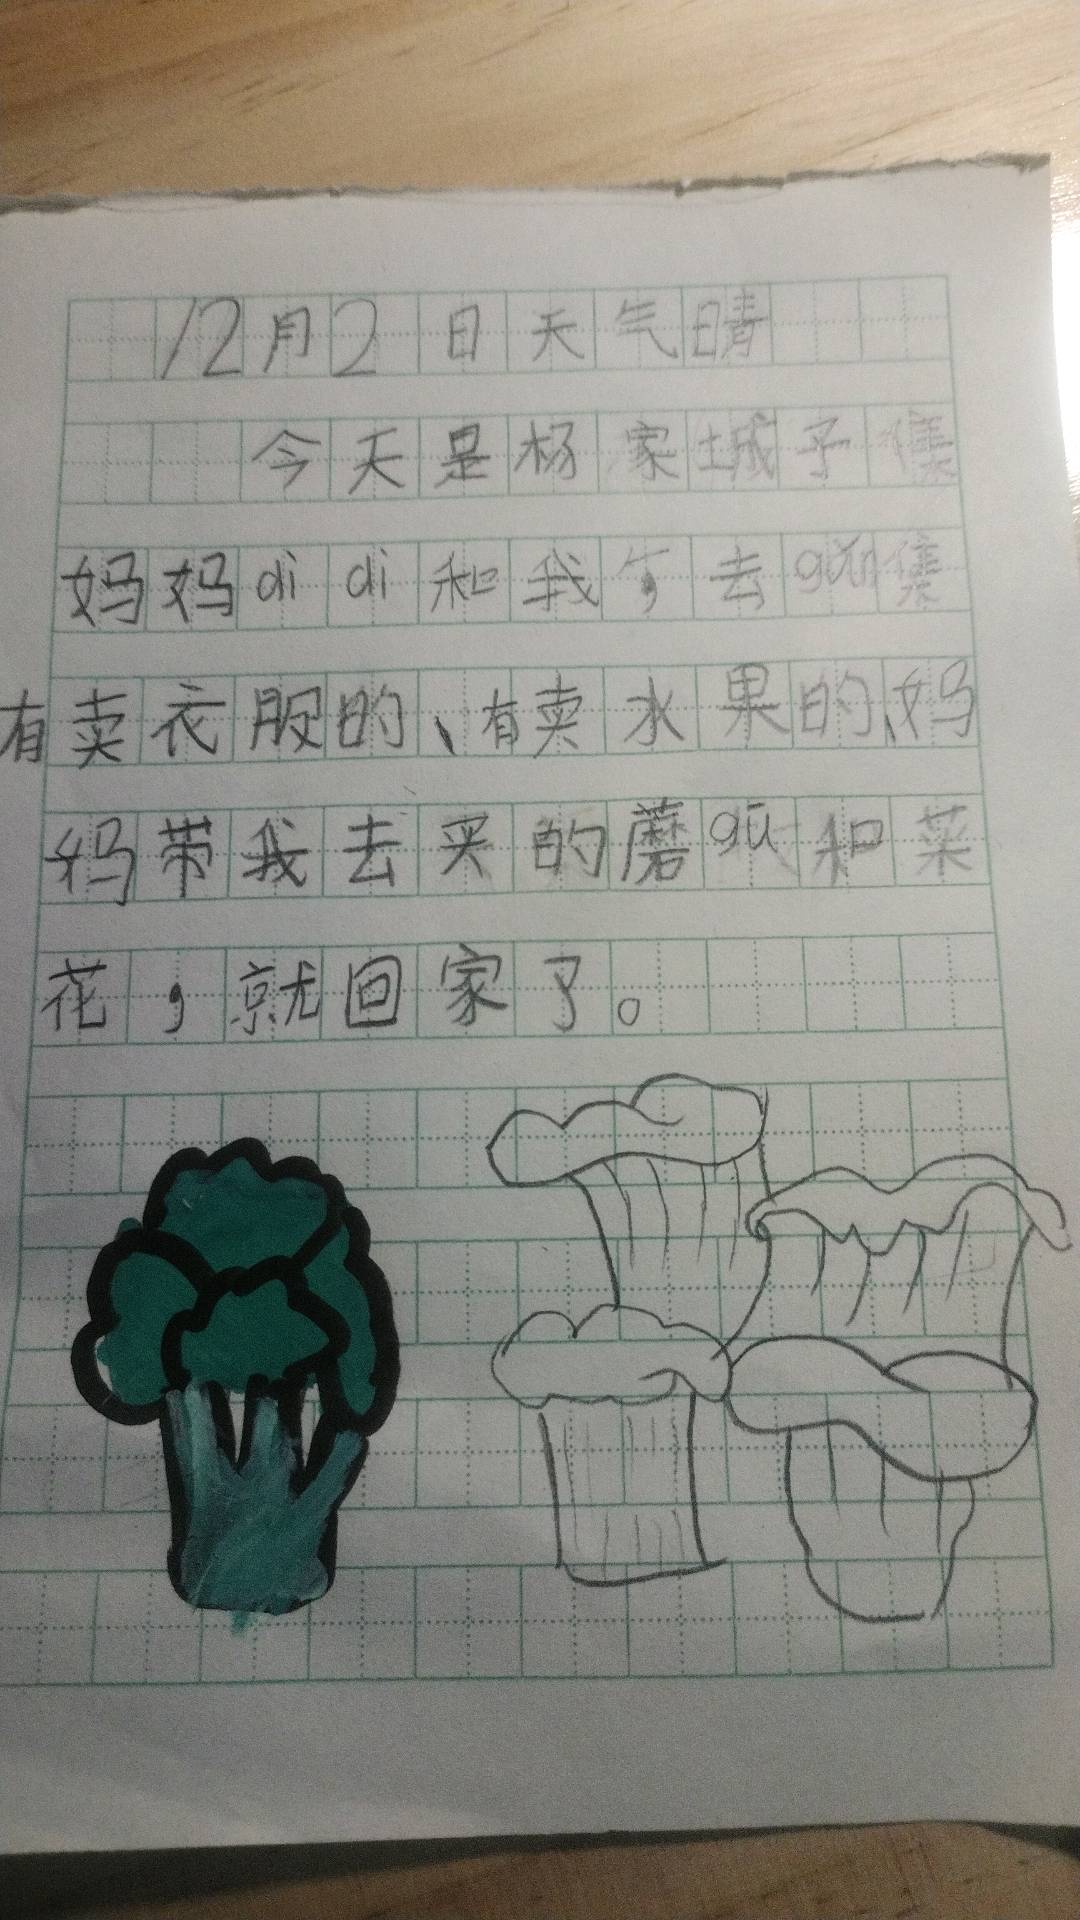 12月2日天气晴
今天是杨家城子集
妈妈di di和我,去gǎn集
有卖衣服的、有卖水果的、妈
妈带我去买的蘑gū和菜
花,就回家了。